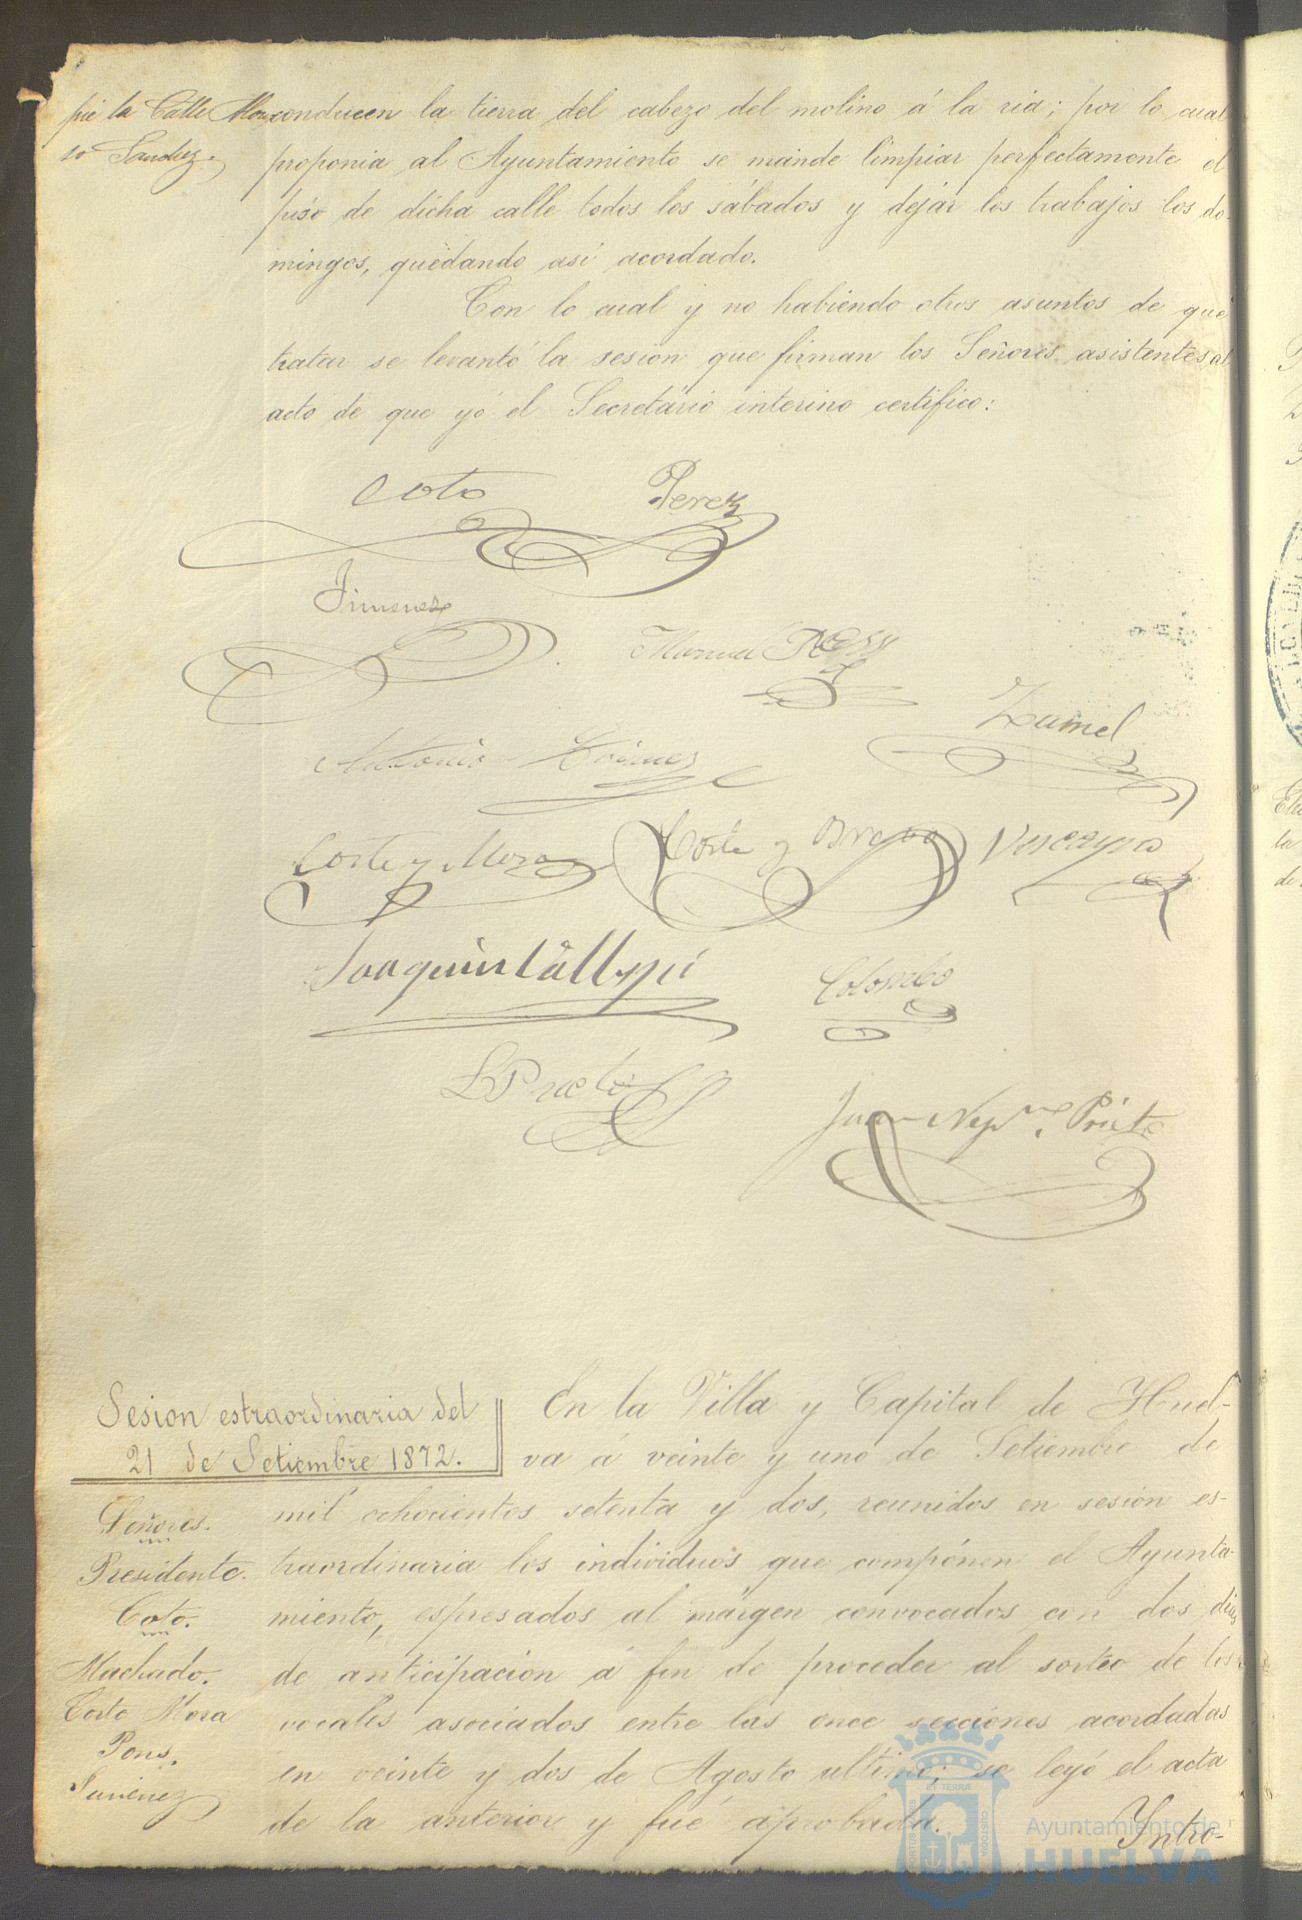 pie la Calle Alon
so Sanchez.
conducen la tierra del cabezo del molino á la ria; por lo cual
proponia al Ayuntamiento se mande limpiar perfectamente el
piso de dicha calle todos los sábados y dejár los trabajos los do-
mingos, quedando asi acordado.
Con lo cual y no habiendo otros asuntos de que
tratar se levantó la sesion que firman los Señores asistentes al
acto de que yó el Secretario interino certifico:
Coto
Perez
Jimenez
Manuel
Zumel
Antonio
Corte y Mora
Corte y Bravo
Joaquin
Colombo
Prieto
Juan Nepno. Prieto
Sesion estraordinaria del
21 de Setiembre 1872.
Señores.
Presidente.
Coto.
Machado.
Corte Mora
Pons.
Jimenez
En la Villa y Capital de Huel-
va á veinte y uno de Setiembre de
mil ochocientos setenta y dos, reunidos en sesion es-
traordinaria los individuos que compónen el Ayunta-
miento, espresados al márgen convocados con dos dias
de anticipacion á fin de proceder al sorteo de los
vocales asociados entre las once secciones acordadas
en veinte y dos de Agosto ultimo; se leyó el acta
de la anterior y fué aprobada.
Intro-
ET TERRÆ
PORTUS MARIS
CUSTODIA
Ayuntamiento de
HUELVA